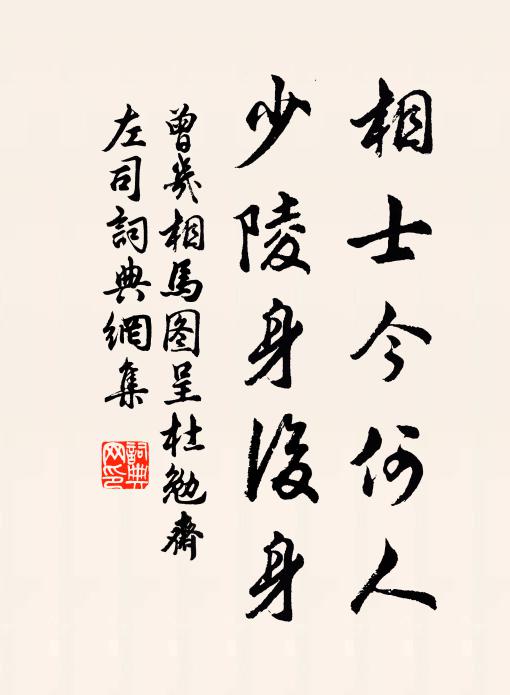 相士今何人
少陵身後身
曾幾相馬图呈杜勉齋
左司詞典網集
詞典网印